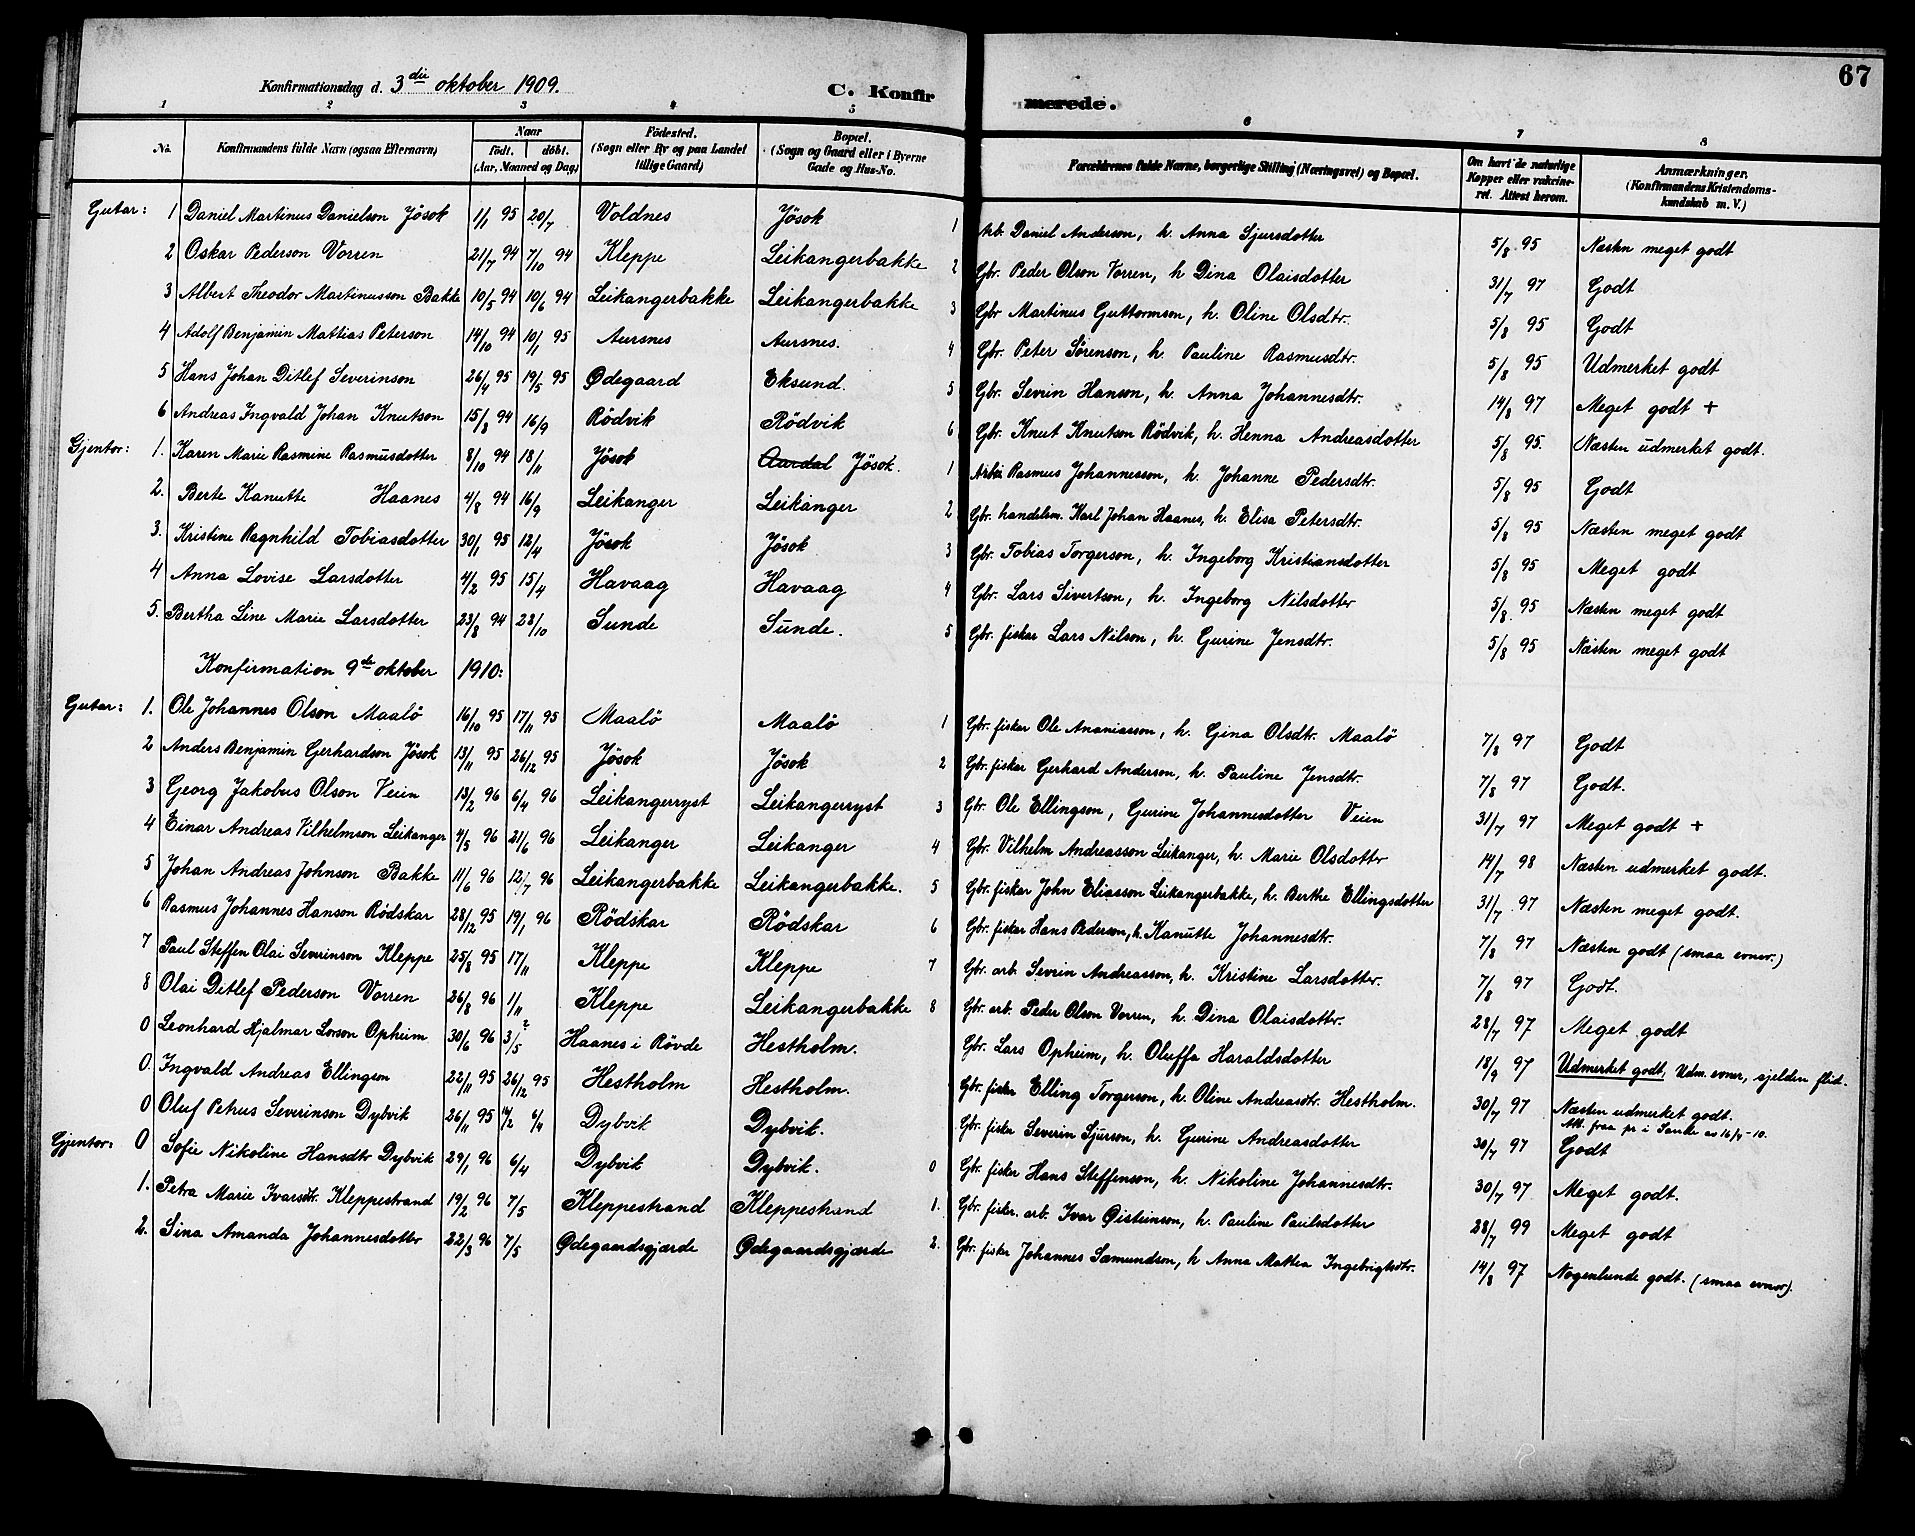 Konfirmationsdag d. 3die oktober 1909. C. Konfirmerede. 67
1 2 3 4 5 6 7 8
No. Konfirmandens fulde Navn (ogsaa Efternavn) Naar födt. döbt. (Aar, Maaned og Dag) Födested. (Sogn eller By og paa Landet tillige Gaard) Bopæl. (Sogn og Gaard eller i Byerne Gade og Hus-No. Forældrenes fulde Navne, borgerlige Stilling (Næringsvei) og Bopæl. Om havt de naturlige Kopper eller vakcineret. Attest herom. Anmærkninger. (Konfirmandens Kristendomskundskab m. V.)
Gutar: 1 Daniel Martinus Danielson Jösok 1/1 95 20/7 Voldnes Jösok 1 Arb. Daniel Anderson, h. Anna Sjursdotter 5/8 95 Næsten meget godt
2 Oskar Pederson Vorren 21/7 94 7/10 94 Kleppe Leikangerbakke 2 Gbr. Peder Olson Vorren, h Dina Olaisdotter 31/7 97 Godt
3 Albert Theodor Martinusson Bakke 10/5 94 10/6 94 Leikangerbakke Leikangerbakke 3 Gbr Martinus Guttormson, h. Oline Olsdtr. 5/8 95 Godt
4 Adolf Benjamin Mattias Peterson 14/10 94 10/1 95 Aursnes Aursnes. 4 Gbr. Peter Sörenson, h. Pauline Rasmusdtr. 5/8 95 Udmerket godt
5 Hans Johan Ditlef Severinson 26/4 95 19/5 95 Ødegaard Eksund. 5 Gbr. Sevrin Hanson, h. Anna Johannesdtr. 14/8 97 Meget godt +
6 Andreas Ingvald Johan Knutson 15/8 94 16/9 Rödvik Rödvik 6 Gbr. Knut Knutson Rödvik, h. Henna Andreasdotter 5/8 95. Næsten udmerket godt.
Gjentor: 1. Karen Marie Rasmine Rasmusdotter 8/10 94 18/11 Jösok Aardal Jösok. 1 Arbei Rasmus Johannesson, h. Johanne Pedersdtr. 5/8 95 Godt
2. Berte Kanutte Haanes 4/8 94 16/9 Leikanger Leikanger 2 Gbr. handelsm. Karl Johan Haanes, h. Elisa Petersdtr. 5/8 95 Næsten meget godt
3. Kristine Ragnhild Tobiasdotter 30/1 95 12/4 Jösok Jösok 3 Gbr. Tobias Torgerson, h. Ingeborg Kristiansdotter 5/8 95 Meget godt
4 Anna Lovise Larsdotter 4/2 95 15/4 Havaag Havaag 4 Gbr. Lars Sivertson, h. Ingeborg Nilsdotter 5/8 95 Næsten meget godt
5. Bertha Line Marie Larsdotter 23/8 94 28/10 Sunde Sunde. 5 Gbr. fisker Lars Nilson, h. Gurine Jensdtr. 5/8 95 Næsten meget godt
Konfirmation 9de oktober 1910:
Gutar: 1. Ole Johannes Olson Maalö 16/10 95 17/11 95 Maalö Maalö 1 Gbr. fiskar Ole Ananiasson, h. Gina Olsdtr. Maalö 7/8 97 Godt
2 Anders Benjamin Gerhardson Jösok 13/11 95 26/12 95 Jösok Jösok 2 Gbr. fiskar Gerhard Anderson, h. Pauline Jensdtr. 7/8 97 Godt.
3 Georg Jakobus Olson Veien 13/2 96 6/4 96 Leikangerryst Leikangerryst 3 Gbr. Ole Ellingson, Gurine Johannesdotter Veien 31/7 97 Meget godt +
4 Einar Andreas Vilhelmson Leikanger 4/5 96 21/6 96 Leikanger Leikanger 4 Gbr. Vilhelm Andreasson Leikanger, h. Marie Olsdotter 14/7 98 Næsten udmerket godt.
5 Johan Andreas Johnson Bakke 11/6 96 12/7 96 Leikangerbakke Leikangerbakke. 5 Gbr. fiskar John Eliasson Leikangerbakke, h. Berthe Ellingsdotter 31/7 97 Næsten meget godt.
6 Rasmus Johannes Hanson Rödskar 28/12 95 19/1 96 Rödskar Rödskar 6 Gbr. fisker Hans Pederson, h. Kanutte Johannesdtr. 7/8 97 Næsten godt (smaa evner.)
7 Paul Steffen Olai Severinson Kleppe 25/8 95 17/11 Kleppe Kleppe 7 Gbr. arb. Sevrin Andreasson, h. Kristine Larsdotter. 7/8 97 Godt.
8 Olai Ditlef Pederson Vorren 26/8 96 1/11 Kleppe Leikangerbakke 8 Gbr. arb. Peder Olson Vorren, h. Dina Olaisdotter. 28/7 97 Meget godt
0 Leonhard Hjalmar Larson Opheim 30/6 96 3/5 ? Haanes i Rövde Hestholm. Gbr. Lars Opheim, h. Oluffa Haraldsdotter 18/9 97 Udmerket godt, Udm. evner, sjelden flid.
0. Ingvald Andreas Ellingson 22/11 95 26/12 95 Hestholm Hestholm. Gbr. fisker Elling Torgerson, h. Oline Andreasdtr. Hestholm. 30/7 97 Næsten udmerket godt.
0 Oluf Petrus Severinson Dybvik 26/11 95 6/4 Dybvik Dybvik. Gbr. fisker Severin Sjurson, h. Gurine Andreasdotter 30/7 97 Godt
Gjentor: 0 Sofie Nikoline Hansdtr Dybvik 29/1 96 6/4 Dybvik Dybvik. 0 Gbr. fisker Hans Steffenson, h. Nikoline Johannesdtr. 30/7 97 Meget godt.
1. Petra Marie Ivarsdtr. Kleppestrand 19/2 96 7/5 Kleppestrand Kleppestrand 1. Gbr. fisker. arb. Ivar Øisteinson, h. Pauline Paulsdotter 28/7 99 Meget godt
2. Sina Amanda Johannesdotter 22/3 96 7/5 Ødegaardsgjærde Ødegaardsgjærde 2. Gbr. fisker Johannes Samundson, h Anna Mattea Ingebrigtsdtr. 14/8 97 Nogenlunde godt. (smaa evner).